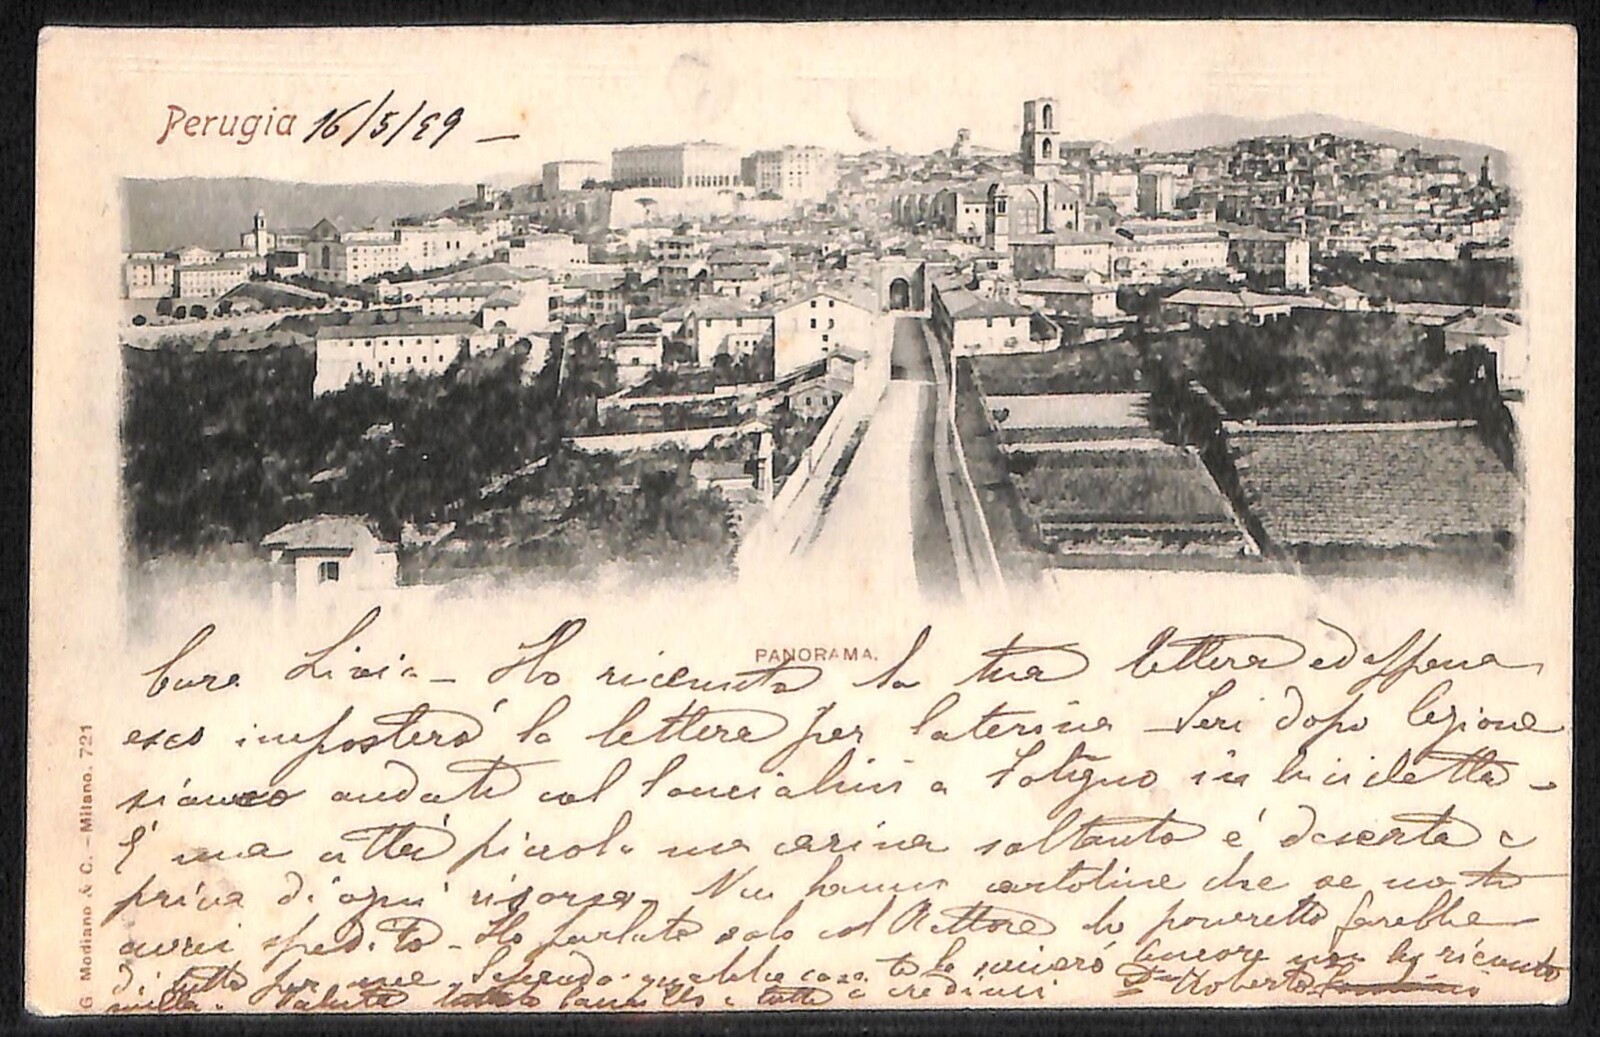 Perugia 16/5/99 –
PANORAMA.
Cara Livia – Ho ricevuto la tua lettera ed appena
esco imposterò la lettera per Laterina – Ieri dopo lezione
siamo andati col a Foligno in bicicletta –
È una città piccola ma carina soltanto è deserta e
priva di ogni risorsa. Non hanno cartoline che se no te
avrei spedito – Ho parlato solo col Rettore lo poveretto farebbe
di tutto per me Sapendo qualche cosa te lo scriverò Ancora non ho ricevuto
nulla. Saluta tutti e credimi Tuo Roberto
G Modiano & C. – Milano. 721